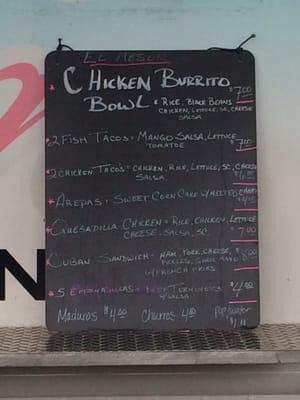 EL MESON
CHICKEN BURRITO $7.00
BOWL * RICE, BLACK BEANS
CHICKEN, LETTUCE, SC, CHEESE
SALSA
2 FISH TACOS - MANGO SALSA, LETTUCE
TOMATOE $7.00
* 2 CHICKEN TACO'S - CHICKEN, RICE, LETTUCE, SC, CHEESE
SALSA $6.00
* AREPAS - SWEET CORN CAKE W/MELTED CHEESE
$4.00
* QUESADILLA CHICKEN - RICE, CHICKEN, LETTUCE
CHEESE, SALSA, SC. $7.00
* CUBAN SANDWICH - HAM, PORK, CHEESE, $8.00
PICKLES, GARLIC MAYO
W/FRENCH FRIES
* 5 EMPANADILLAS - TURNOVERS $4.00
W/SALSA
Maduros $4.00 Churros 4.00 Pop/water
N